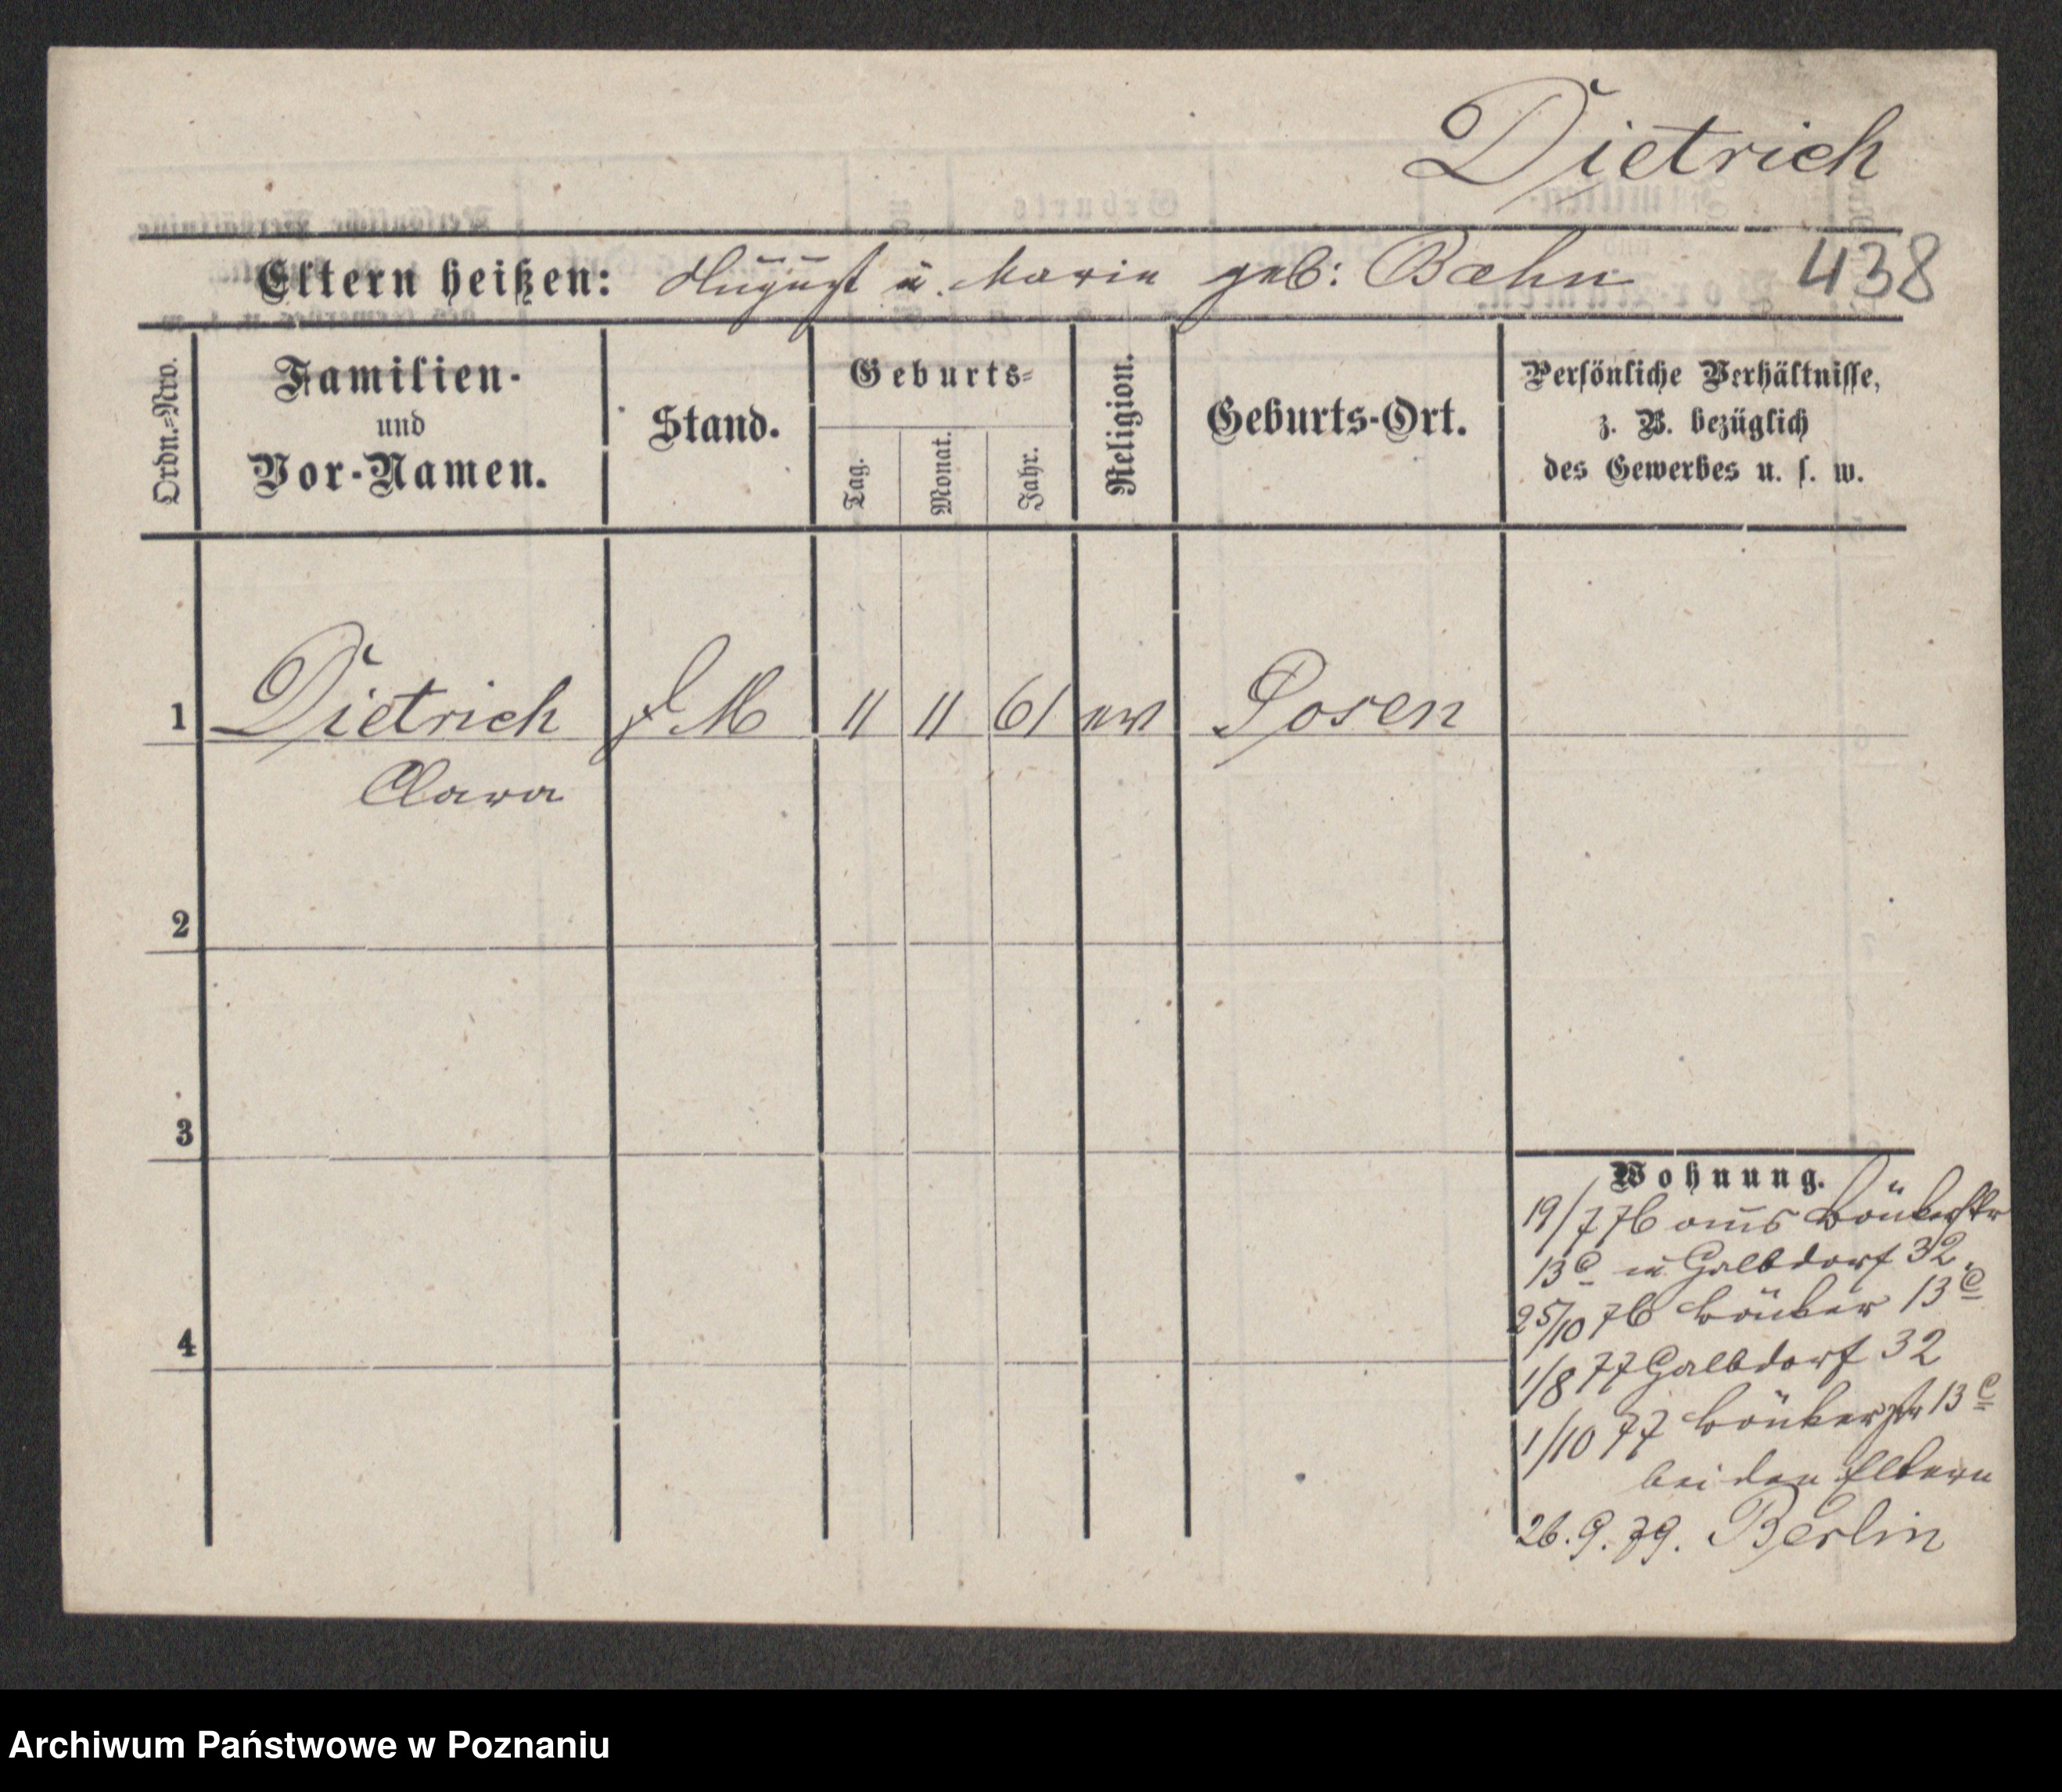 Dietrich
Eltern heißen: August u. Marie geb: Baehn
438
Ordn.=Nro.
Familien-
und
Vor-Namen.
Stand.
Geburts-
Tag.
Monat.
Jahr.
Religion.
Geburts-Ort.
Persönliche Verhältnisse,
z. B. bezüglich
des Gewerbes u. s. w.
1 Dietrich M 11 11 61 ev Posen
Clara
2
3
4
Wohnung.
19/7 76 aus
13c 32
25/10 76 13c
1/8 77 32
1/10 77 13c
bei den Eltern
26. 9. 79. Berlin
Archiwum Państwowe w Poznaniu